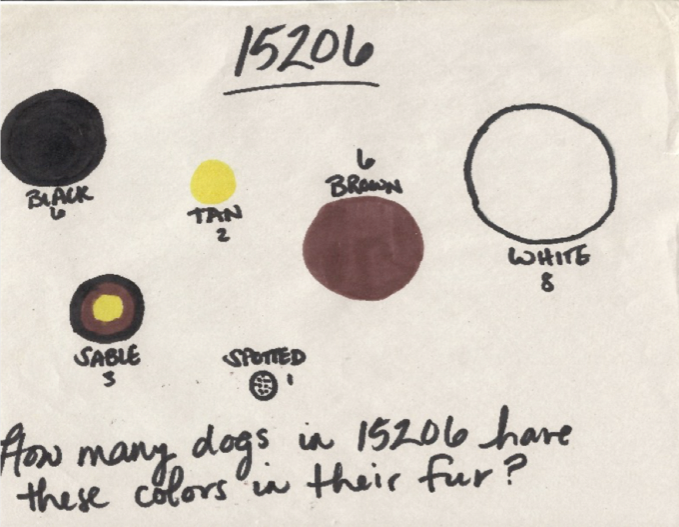 15206
BLACK
6
TAN
2
6
BROWN
WHITE
8
SABLE
3
SPOTTED
1
How many dogs in 15206 have
these colors in their fur?